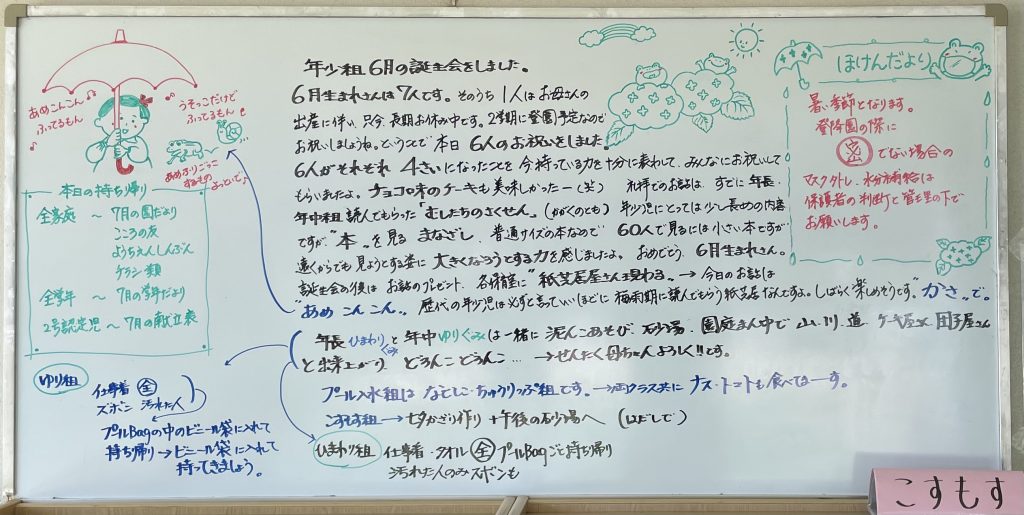 年少組 6月の誕生会をしました。
6月生まれさんは7人です。そのうち1人はお母さんの
出産に伴い、只今、長期お休み中です。2学期に登園予定なので
お祝いしましょうね。ということで本日 6人のお祝いをしました。
6人がそれぞれ 4さいになったことを今持っている力を十分に表わして、みんなにお祝いして
もらいましたよ。チョコの木のケーキも美味しかったー(笑) 礼拝でのお話は、すでに年長・
年中組 読んでもらった「むしたちのさくせん」(かがくのとも) 年少児にとっては少し長めの内容
ですが“本”を見る まなざし、普通サイズの本なので 60人で見るには小さい本ですが
遠くからでも見ようとする姿に 大きくなろうとする力を感じましたよ。おめでとう 6月生まれさん。
誕生会の後は お話のプレゼント、各保育室に“紙芝居屋さん現わる”→今日のお話は
“あめ こん こん”。歴代の年少児は必ずと言っていいほどに 梅雨期に読んでもらう紙芝居なんですよ。しばらく楽しめそうです。“かさ”で。
年長 ひまわりぐみ と 年中 ゆりぐみは 一緒に 泥んこあそび。砂場・園庭まん中で 山、川、道 ケーキ屋さん 団子屋さん
と出来上がり どろんこ どろんこ… →せんたく母ちゃんよろしく!!です。
プール入水組は なでしこ・ちゅうりっぷ組です。→両クラス共に ナス・トマトも食べてまーす。
こすもす組 → 七夕かざり作り + 午後の砂場へ (はだしで)
ひまわり組 仕事着・タオル 全 プールBagごと持ち帰り
汚れた人のみズボンも
あめこんこん
ふってるもん
うそっこだけど
ふってるもん
あめふりごっこ
するもの
よっといで
本日の持ち帰り
全家庭 〜 7月の園だより
こころの友
ようちえんしんぶん
チラシ類
全学年 〜 7月の学年だより
2号認定児〜7月の献立表
ゆり組 仕事着 全
ズボン 汚れた人
プールBagの中のビニール袋に入れて
持ち帰り→ビニール袋に入れて
持ってきましょう。
ほけんだより
暑い季節となります。
登降園の際に
密でない場合の
マスク外し、水分補給は
保護者の判断と管理の下で
お願いします。
こすもす